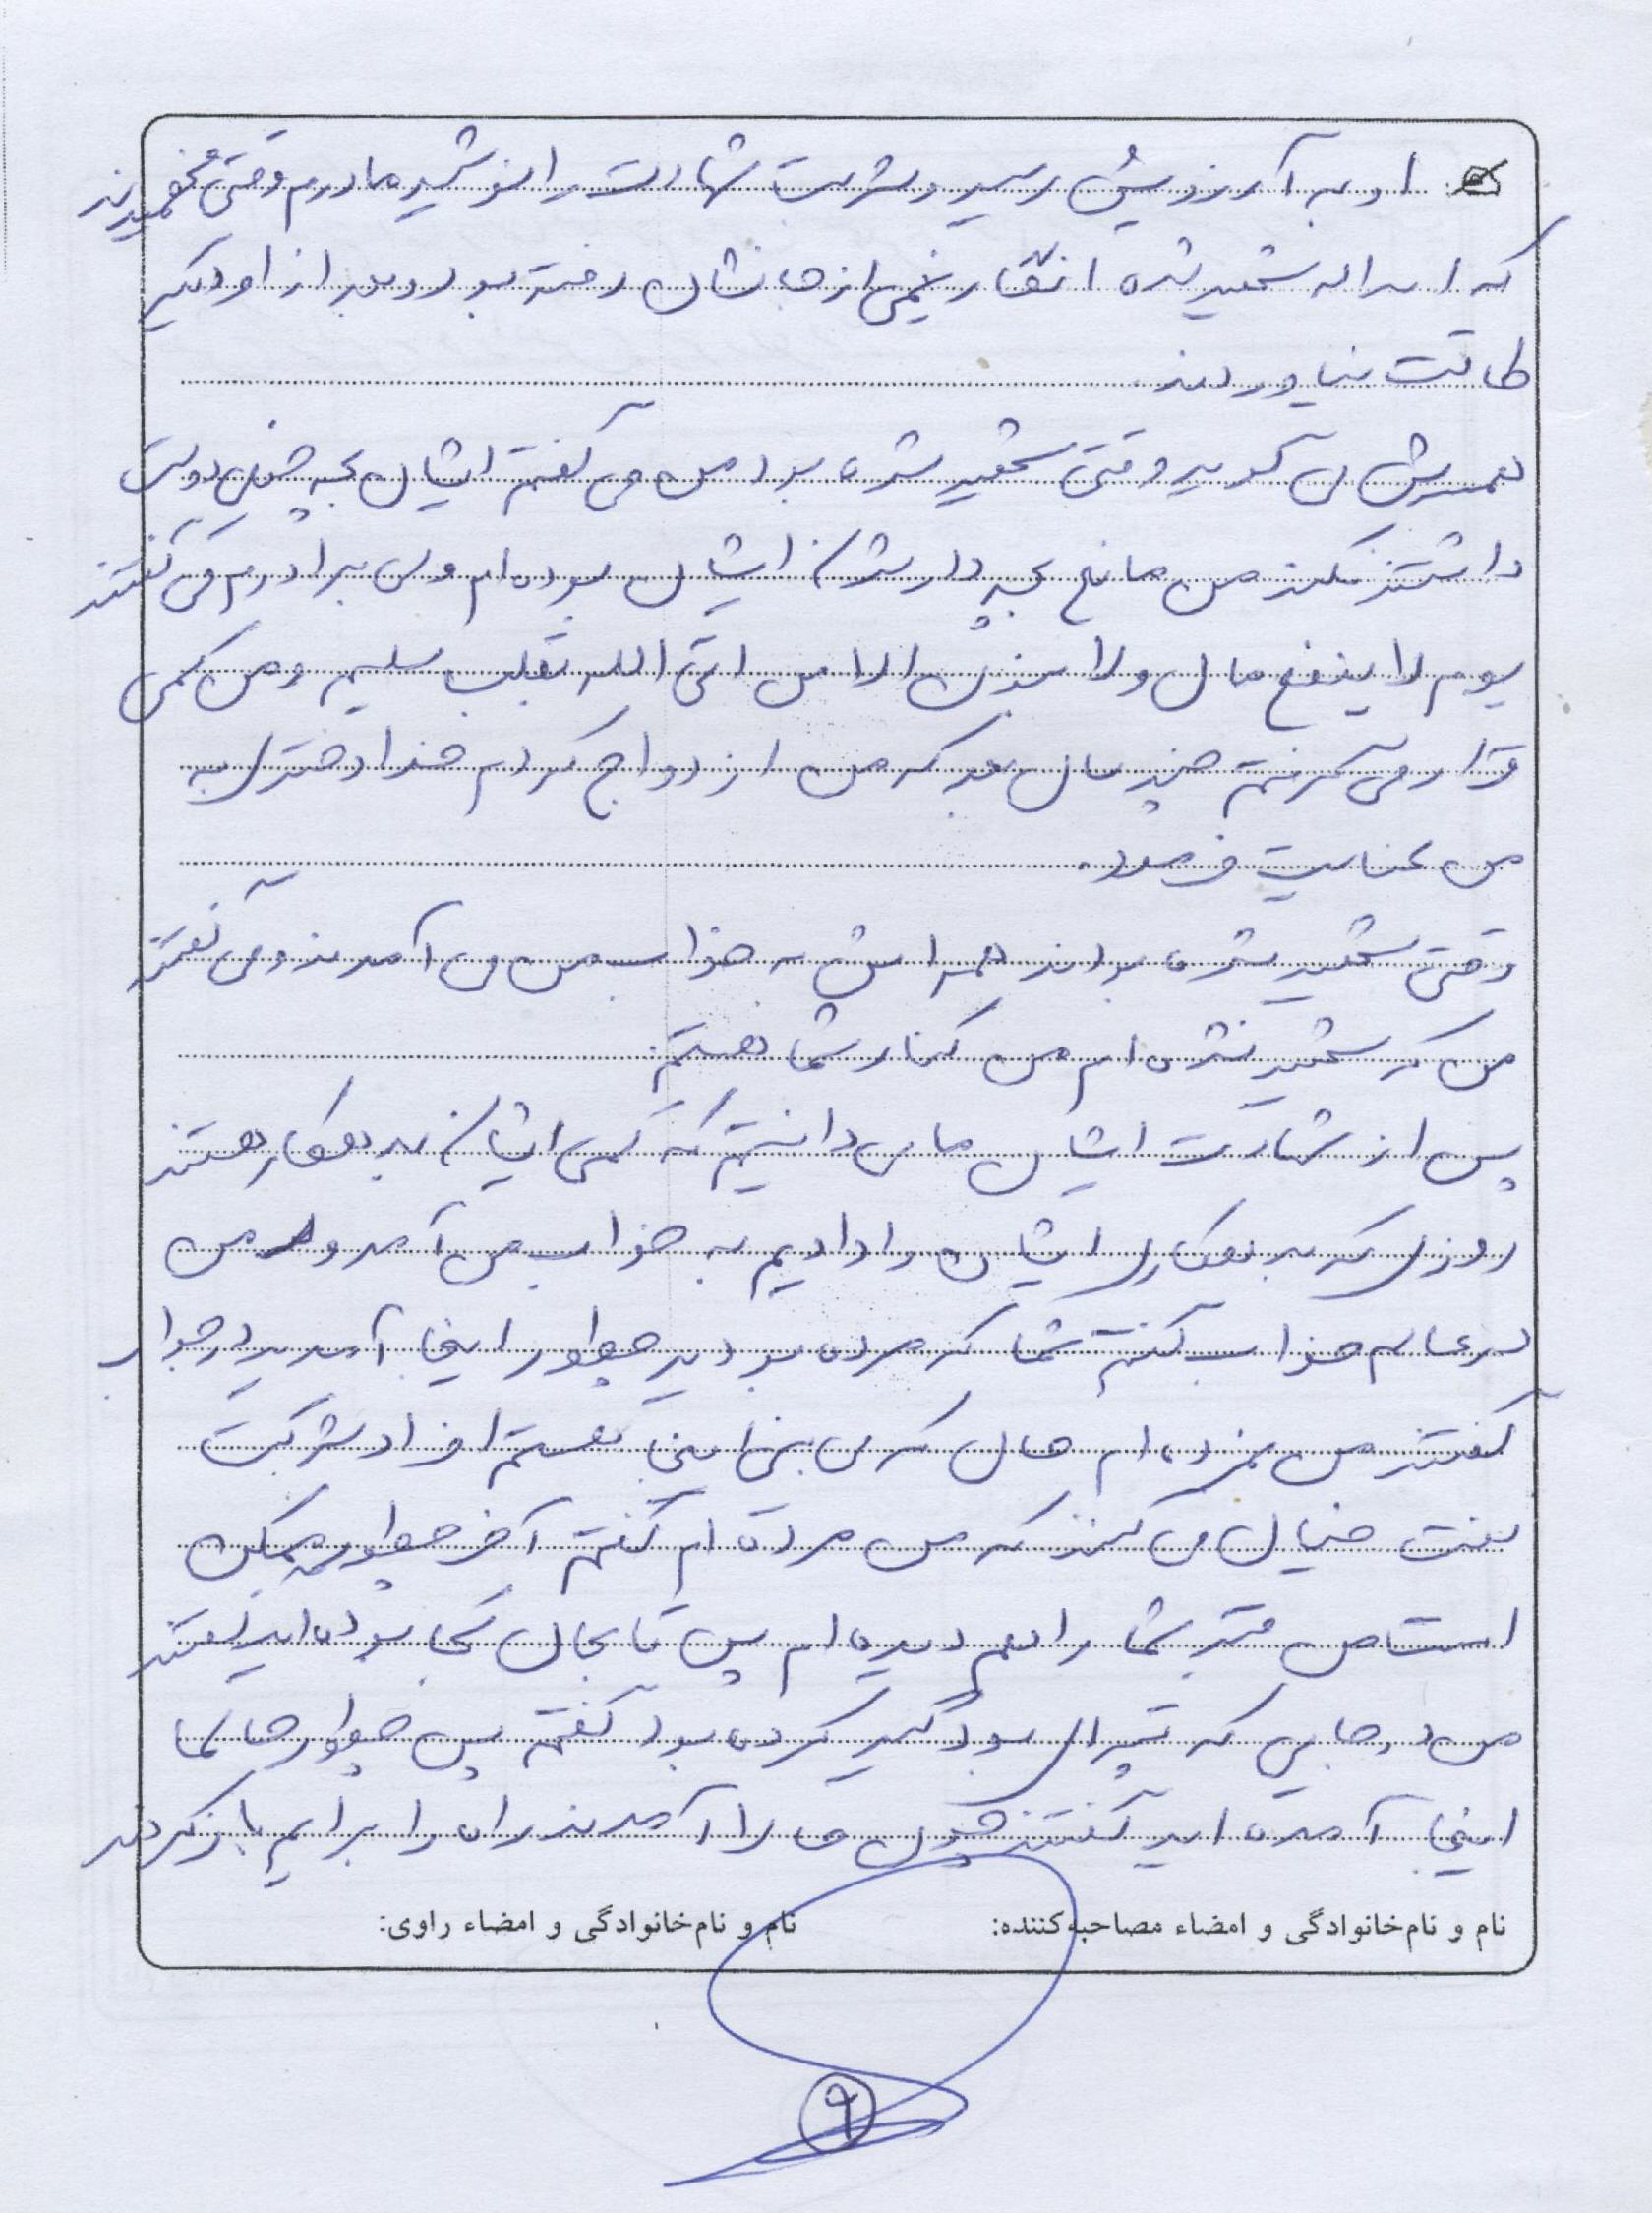 او به آرزویش رسید و شربت شهادت را نوشید مادرم وقتی فهمیدند
که اسداله شهید شده انگار نیمی از جانشان رفته بود و بعد از او دیگر
طاقت نیاوردند.
همسرش می گوید وقتی شهید شده بود من می گفتم ایشان بچه خیلی دوست
داشتند نکند من مانع بچه دار شدن ایشان بوده ام ولی برادرم می گفتند
یوم لا ینفع مال ولا بنون الا من اتی الله بقلب سلیم و من کمی
قرار می گرفتم چند سال بعد که من ازدواج کردم خدا دختری به
من عنایت فرمود.
وقتی شهید شده بودند همه اش به خواب من می آمدند و می گفتند
من که شهید نشده ام من کنار شما هستم.
پس از شهادت ایشان ما می دانستیم که کمی ایشان بدهکار هستند
روزی که بدهکاری ایشان را دادیم به خواب من آمد و من
در عالم خواب گفتم شما که مرده بودید چطور اینجا آمدید در جواب
گفتند من نمرده ام حال که می بینی اینجا هستم افراد شرکت
نفت خیال می کنند که من مرده ام گفتم آخر چطور ممکن
است من قبر شما را هم دیده ام پس تا بحال کجا بوده اید گفتند
من در جایی که تیرال بود گیر کرده بود گفتم پس چطور حالا
اینجا آمده اید گفتند چون ما را آمدند راه را برایم باز کردند
نام و نام‌خانوادگی و امضاء مصاحبه‌کننده: نام و نام‌خانوادگی و امضاء راوی:
۹